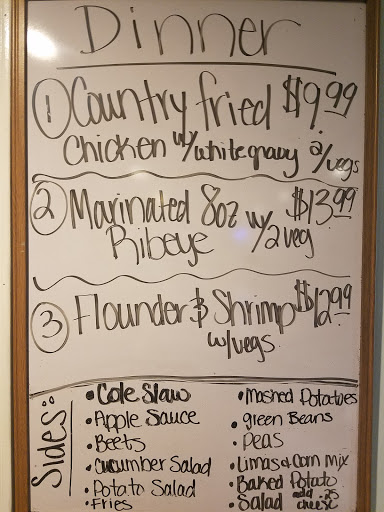 Dinner
1 Country fried $9.99
Chicken w/ white gravy 2/vegs
2 Marinated 8oz w/ $13.99
Ribeye w/2 veg
3 Flounder & Shrimp $12.99
w/vegs
Sides:
• Cole Slaw
• Apple Sauce
• Beets
• Cucumber Salad
• Potato Salad
• Fries
• Mashed Potatoes
• green Beans
• Peas
• Limas & Corn Mix
• Baked Potato
• Salad add .25 cheese